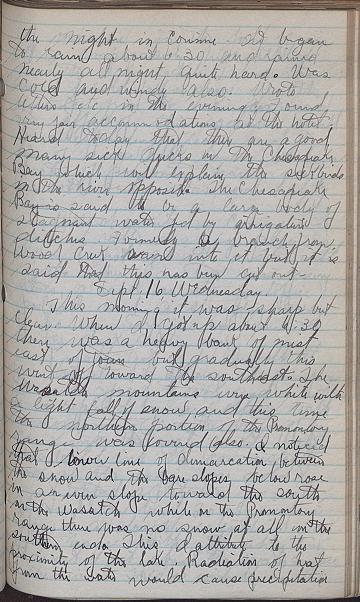 the night in Corinne. It began
to rain about 6:30 and rained
nearly all night, quite hard. Was
cold and windy also. Wrote
letters etc in the evening. Found
very fair accommodations at the hotel.
Heard today that there are a good
many sick ducks in the Chesapeake
Bay which would explain the sick birds
in the river opposite. The Chesapeake
Bay is said to be a large body of
stagnant water fed by irrigation
ditches. Formerly a branch from
ran into it but it is
said that this has been cut out.
Sept. 16 Wednesday
This morning it was sharp but
clear. When I got up about 4:30
there was a heavy bank of mist
east of town but gradually this
went off toward the southeast. The
Wasatch mountains were white with
a light fall of snow, and this time
the northern portion of the Promontory
range was covered also. I noticed
that line of demarcation between
the snow and the bare slopes below rose
in an even slope toward the south
in the Wasatch while on the Promontory
range there was no snow at all on the
southern end. This I attribute to the
proximity of the lake. Radiation of heat
from the lake would cause precipitation